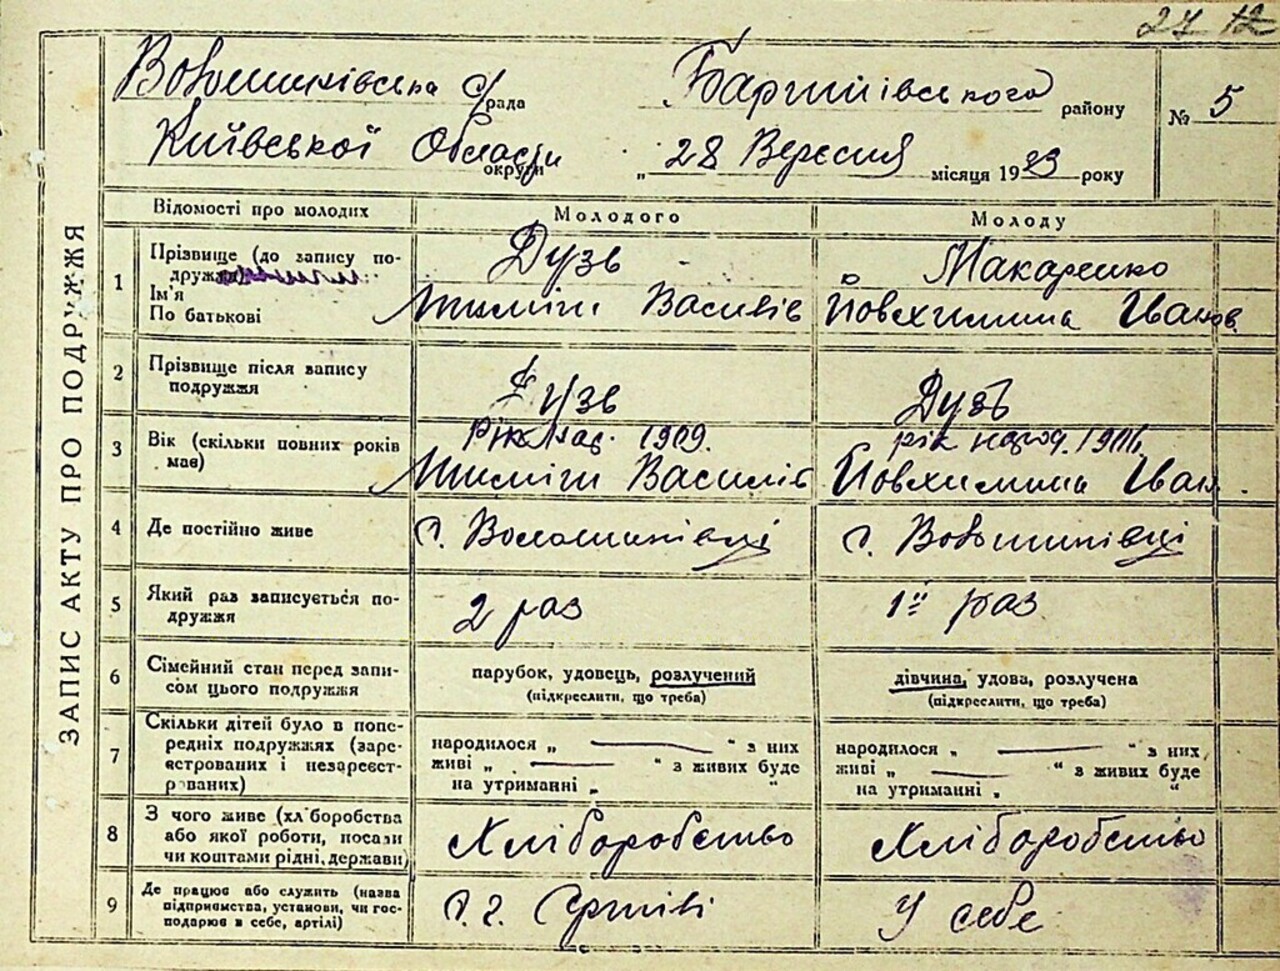 27 12
Волошинівська с/рада Баришівського району № 5
Київської Области округи „28 Вересня місяця 1933 року
ЗАПИС АКТУ ПРО ПОДРУЖЖЯ
Відомості про молодих Молодого Молоду
1 Прізвище (до запису по-
дружжя)
Ім'я
По батькові
Дузь
Василів
Макаренко
Йовхимина Іванов.
2 Прізвище після запису
подружжя
Дузь
Дузь
3 Вік (скільки повних років
має)
Рік нас. 1909.
Василів
рік народ.
Йовхимина Іван.
4 Де постійно живе
с. Волошинівці
с. Волошинівці
5 Який раз записується по-
дружжя
2 раз
1й раз
6 Сімейний стан перед запи-
сом цього подружжя
парубок, удовець, розлучений
(підкреслити, що треба)
дівчина, удова, розлучена
(підкреслити, що треба)
7 Скільки дітей було в попе-
редніх подружжях (заре-
єстрованих і незареєст-
рованих)
народилося „ — “ з них
живі „ — “ з живих буде
на утриманні „ “
народилося „ — “ з них
живі „ — “ з живих буде
на утриманні „ “
8 З чого живе (хліборобства
або якої роботи, посади
чи коштами рідні, держави)
Хліборобство
Хліборобство
9 Де працює або служить (назва
підприємства, установи, чи гос-
подарює в себе, артілі)
с. г. Артілі
У себе